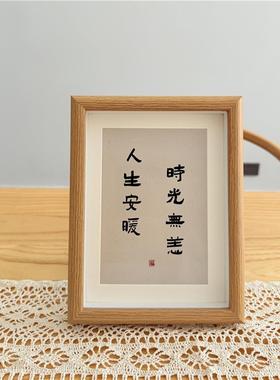 時光無恙
人生安暖